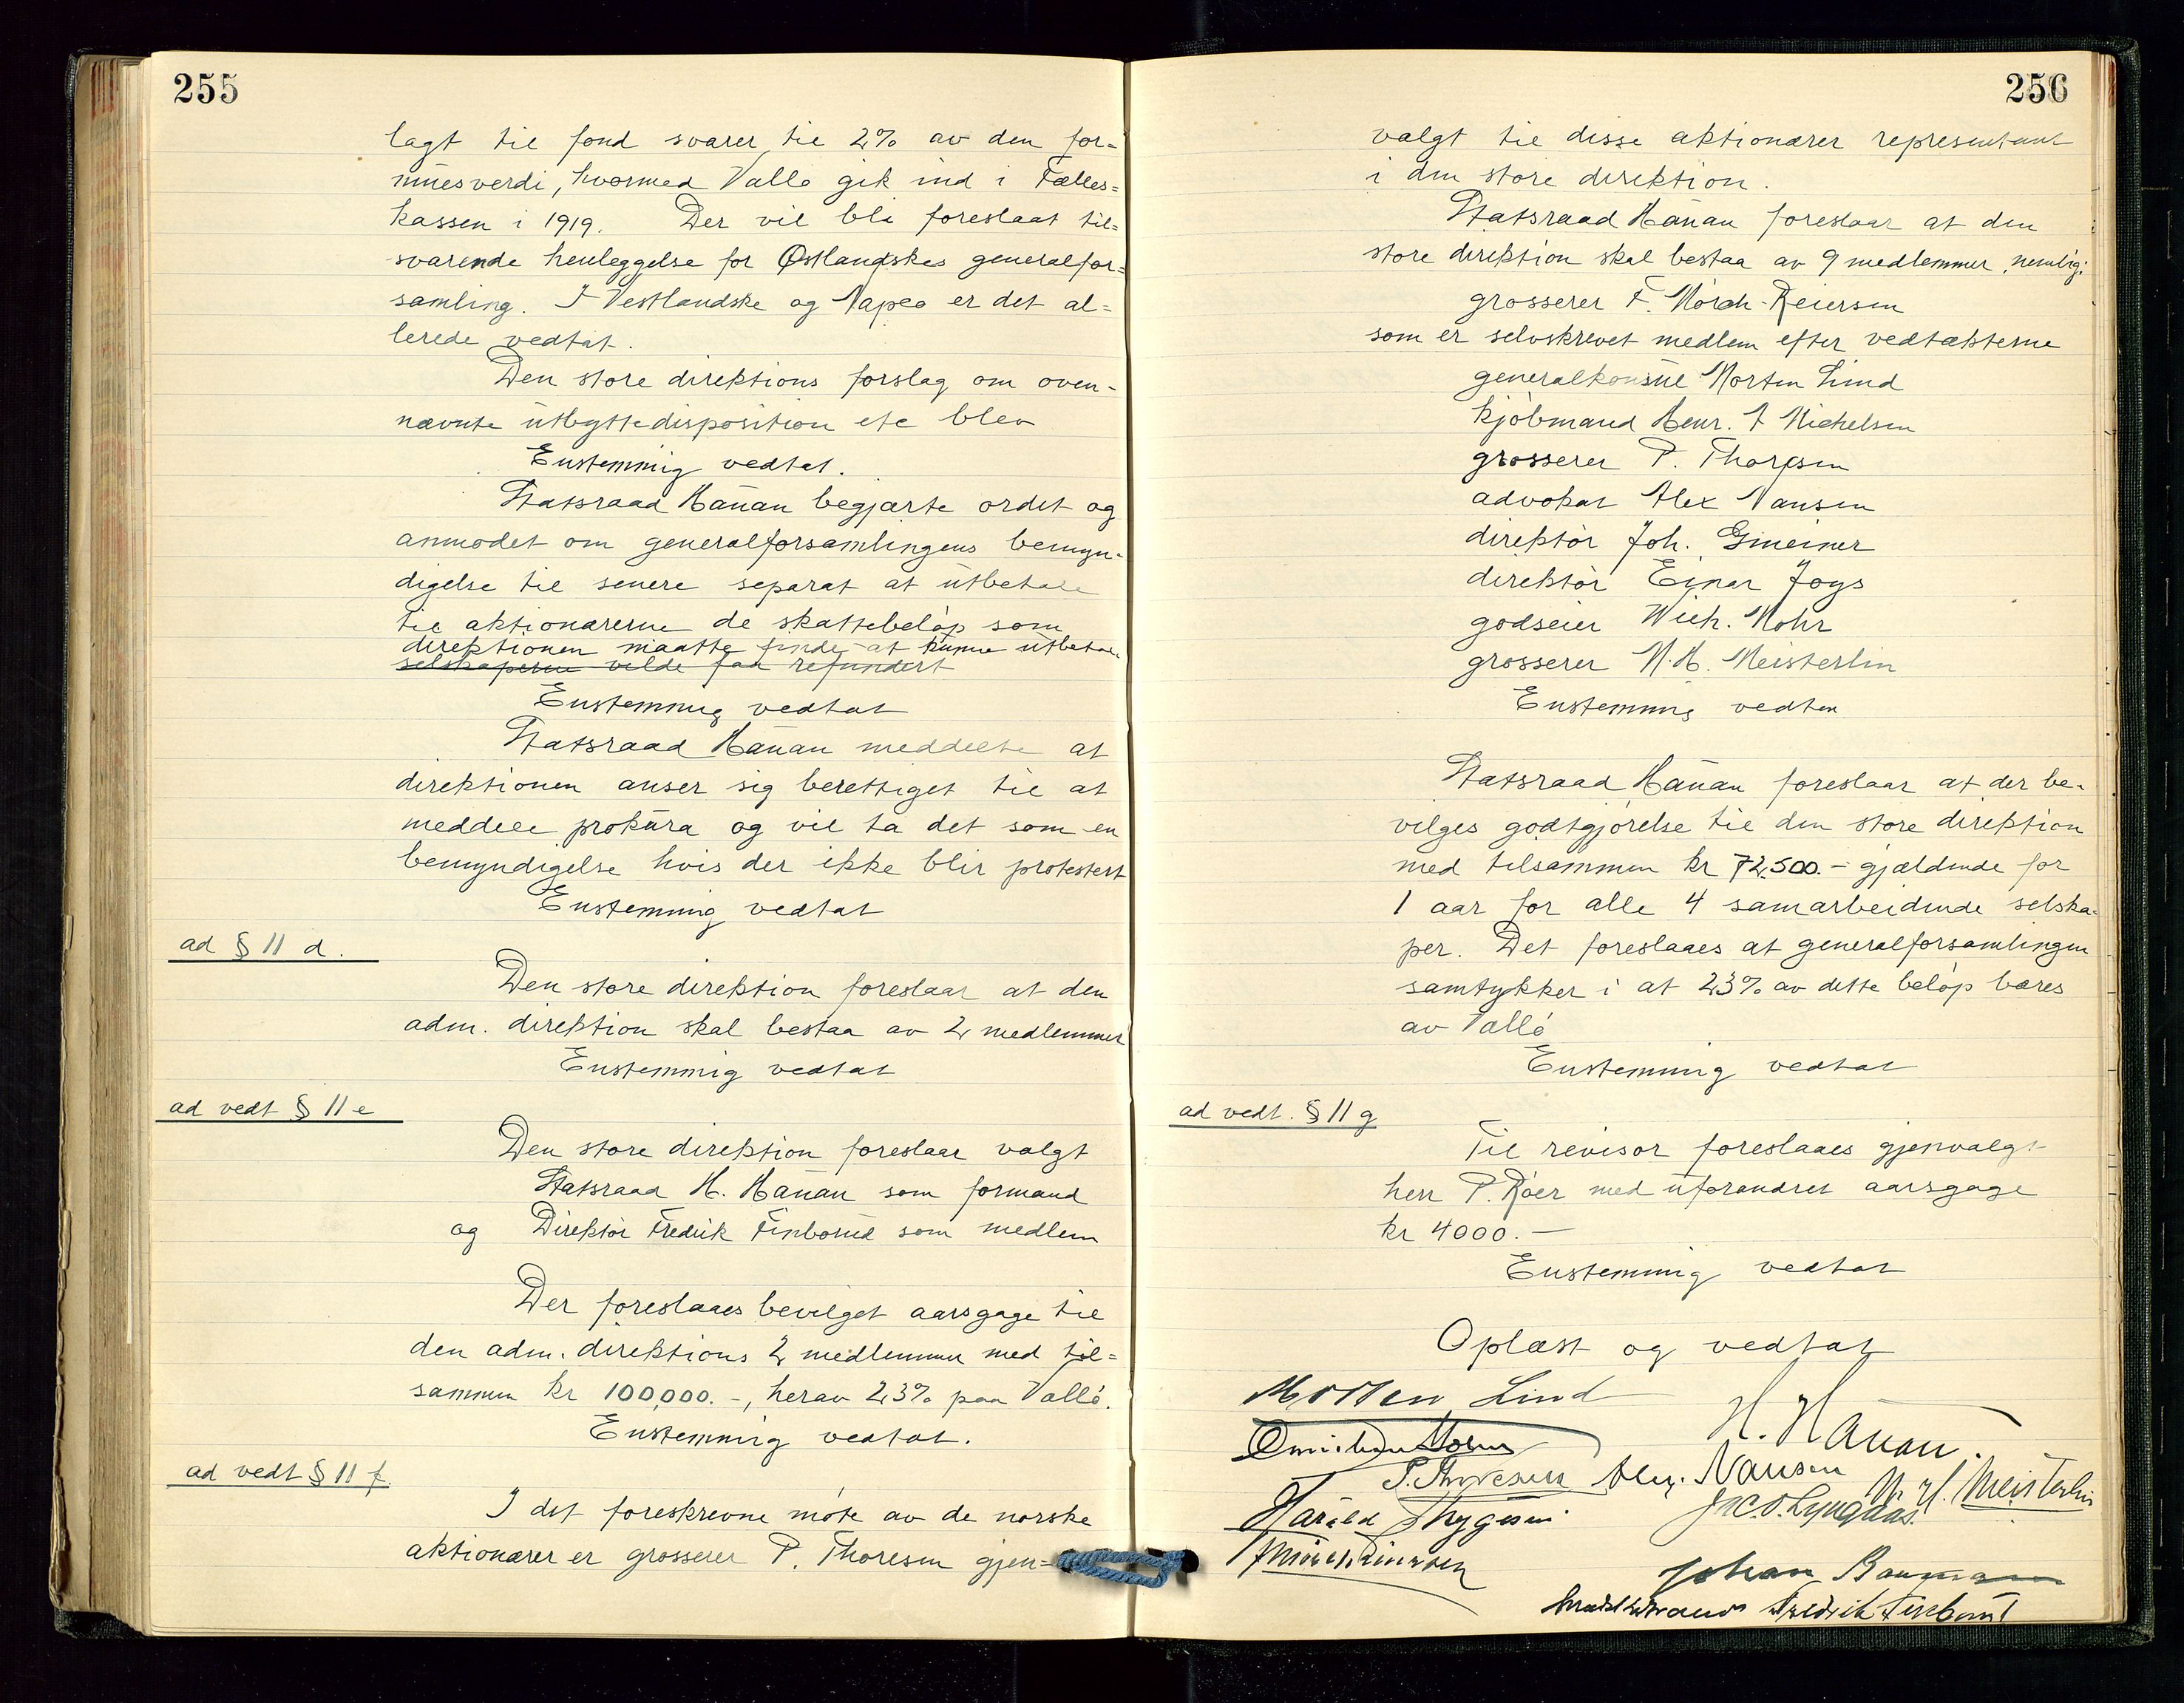 255
lagt til fond svarer til 2% av den for=
muesverdi, hvormed Vallø gik ind i Fælles=
kassen i 1919. Der vil bli foreslaat til=
svarende henleggelse for Østlandskes generalfor=
samling. I Vestlandske og Napeo er det al=
lerede vedtat.
Den store direktions forslag om oven-
nævnte utbyttedisposition etc blev
Enstemmig vedtat.
Statsraad Hauan begjærte ordet og
anmodet om generalforsamlingens bemyn-
digelse til senere separat at utbetale
til aktionærerne de skattebeløp som
direktionen maatte finde at kunne utbetale
selskaperne vilde faa refundert
Enstemmig vedtat
Statsraad Hauan meddelte at
direktionen anser sig berettiget til at
meddele prokura og vil ta det som en
bemyndigelse hvis der ikke blir protestert
Enstemmig vedtat
ad § 11 d.
Den store direktion foreslaar at den
adm. direktion skal bestaa av 2 medlemmer
Enstemmig vedtat
ad vedt § 11 e
Den store direktion foreslaar valgt
Statsraad H. Hauan som formand
og Direktør Fredrik Finborud som medlem
Der foreslaaes bevilget aarsgage til
den adm. direktions 2 medlemmer med til=
sammen kr 100,000.-, herav 23% paa Vallø.
Enstemmig vedtat.
ad vedt § 11 f.
I det foreskrevne møte av de norske
aktionærer er grosserer P. Thoresen gjen=
256
valgt til disse aktionærer representant
i den store direktion.
Statsraad Hauan foreslaar at den
store direktion skal bestaa av 9 medlemmer, nemlig:
grosserer F. Mørch-Reiersen
som er selvskrevet medlem efter vedtækterne
generalkonsul Morten Lind
kjøbmand Henr. F Michelsen
grosserer P. Thoresen
advokat Alex Nansen
direktør Joh. Gmeiner
direktør Einar Joys
godseier Wilh. Mohr
grosserer N.H. Meisterlin
Enstemmig vedtat
Statsraad Hauan foreslaar at der be-
vilges godtgjørelse til den store direktion
med tilsammen kr 72,500.- gjældende for
1 aar for alle 4 samarbeidende selska-
per. Det foreslaaes at generalforsamlingen
samtykker i at 23% av dette beløp bæres
av Vallø
Enstemmig vedtat
ad vedt. § 11 g
Til revisor foreslaaes gjenvalgt
herr P. Røer med uforandret aarsgage
kr 4000.—
Enstemmig vedtat
Oplæst og vedtat
Morten Lind
H. Hauan.
P. Thoresen Alex. Nansen N. H. Meisterlin
Harald Thygesen J.C.O. Lyngaas.
F Mørch Reiersen
Johan Baumann
Fredrik Finborud